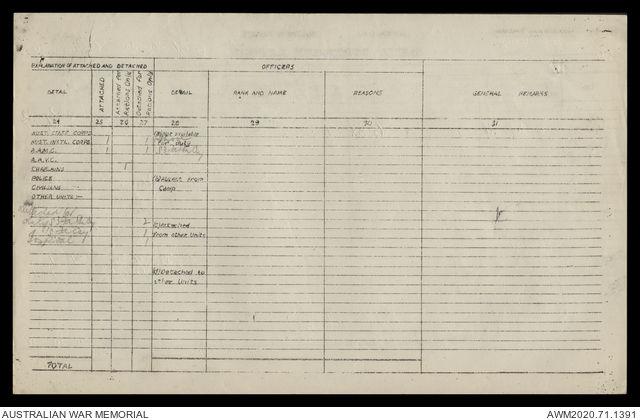 EXPLANATION OF ATTACHED AND DETACHED
OFFICERS
DETAIL
ATTACHED
Attached for Rations Only
Detached for Rations Only
DETAIL
RANK AND NAME
REASONS
GENERAL REMARKS
24 25 26 27 28 29 30 31
AUST. STAFF CORPS
AUST. INSTL. CORPS 1 1
A.A.M.C. 1 1
A.A.V.C.
CHAPLAINS 1
POLICE
CIVILIANS
OTHER UNITS :-
2
1
(a) Not available
for duty
(b) Absent from
Camp
(c) Attached
from other Units
(d) Detached to
other Units
TOTAL
AUSTRALIAN WAR MEMORIAL
AWM2020.71.1391